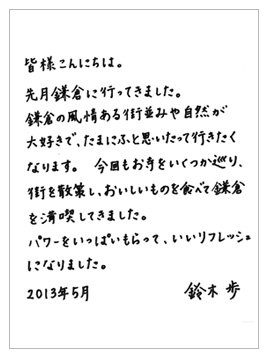 皆様こんにちは。
先月鎌倉に行ってきました。
鎌倉の風情ある街並みや自然が
大好きで、たまにふと思いたって行きたく
なります。 今回もお寺をいくつか巡り、
街を散策し、おいしいものを食べて鎌倉
を満喫してきました。
パワーをいっぱいもらって、いいリフレッシュ
になりました。
2013年5月 鈴木 歩